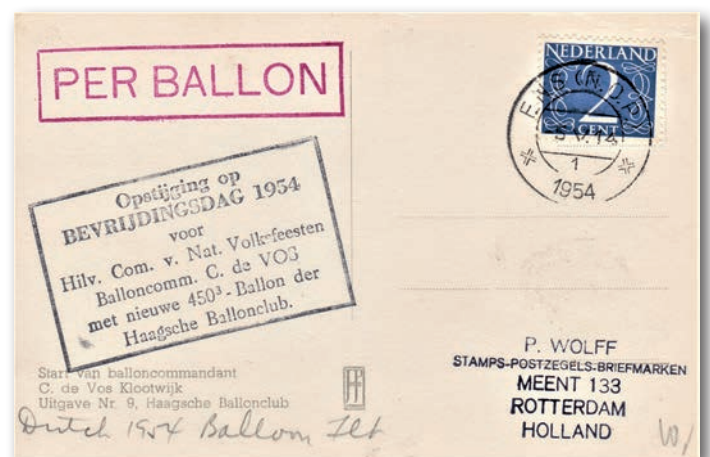 PER BALLON
NEDERLAND
2
CENT
1
1954
Opstijging op
BEVRIJDINGSDAG 1954
voor
Hilv. Com. v. Nat. Volksfeesten
Balloncomm. C. de VOS
met nieuwe 450³-Ballon der
Haagsche Ballonclub.
Start van balloncommandant
C. de Vos Klootwijk
Uitgave Nr. 9, Haagsche Ballonclub
Dutch 1954 Balloon
P. WOLFF
STAMPS-POSTZEGELS-BRIEFMARKEN
MEENT 133
ROTTERDAM
HOLLAND